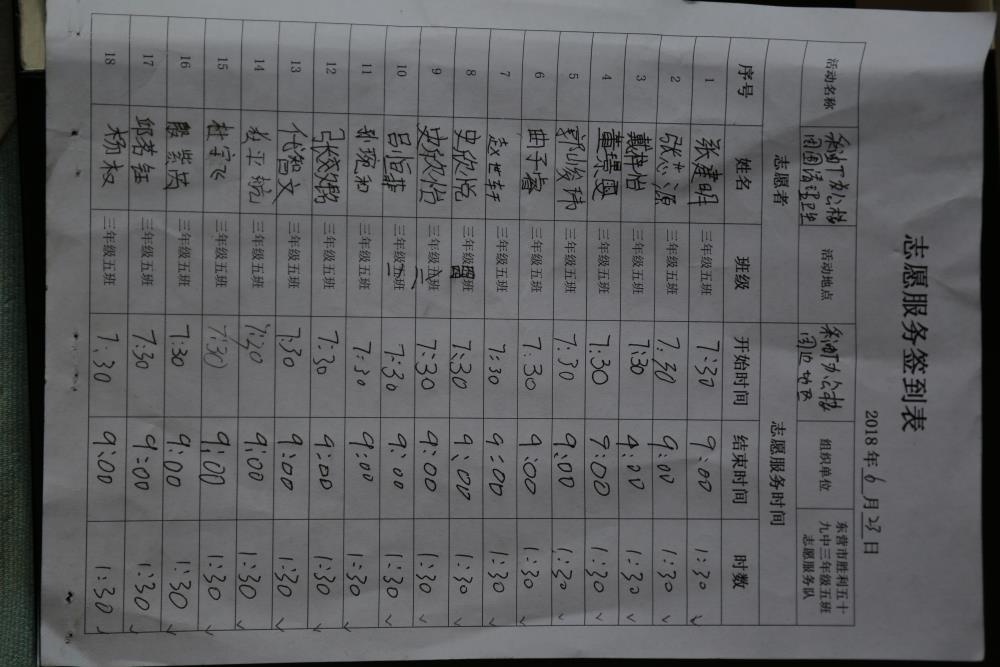 志愿服务签到表
2018年6月23日
活动名称 办公楼周围清理卫生 活动地点 办公楼周边地区 组织单位 东营市胜利五十九中三年级五班志愿服务队
志愿者 志愿服务时间
序号 姓名 班级 开始时间 结束时间 时数
1 张建明 三年级五班 7:30 9:00 1:30 ✓
2 张志源 三年级五班 7:30 9:00 1:30 ✓
3 戴梓怡 三年级五班 7:30 9:00 1:30 ✓
4 董 三年级五班 7:30 9:00 1:30 ✓
5 郭峻玮 三年级五班 7:30 9:00 1:30 ✓
6 曲子睿 三年级五班 7:30 9:00 1:30 ✓
7 赵世轩 三年级五班 7:30 9:00 1:30 ✓
8 史欣悦 三年级四班 7:30 9:00 1:30 ✓
9 史欣怡 三年级六班 7:30 9:00 1:30 ✓
10 吕恒菲 三年级二班 7:30 9:00 1:30 ✓
11 琬和 三年级五班 7:30 9:00 1:30 ✓
12 张 三年级五班 7:30 9:00 1:30 ✓
13 代智文 三年级五班 7:30 9:00 1:30 ✓
14 平 三年级五班 7:30 9:00 1:30 ✓
15 杜宇飞 三年级五班 7:30 9:00 1:30 ✓
16 殷紫茵 三年级五班 7:30 9:00 1:30 ✓
17 邱若钰 三年级五班 7:30 9:00 1:30 ✓
18 杨权 三年级五班 7:30 9:00 1:30 ✓